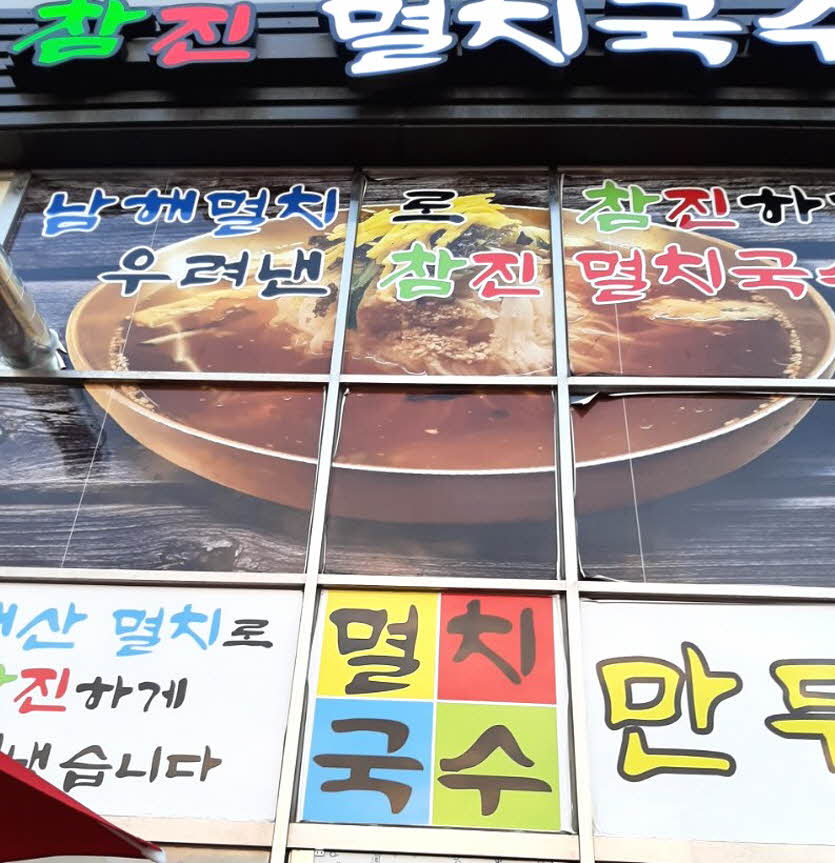 참진 멸치국수
남해멸치로 참진하
우려낸 참진 멸치국수
산 멸치로
진하게
습니다
멸치
국수
만두